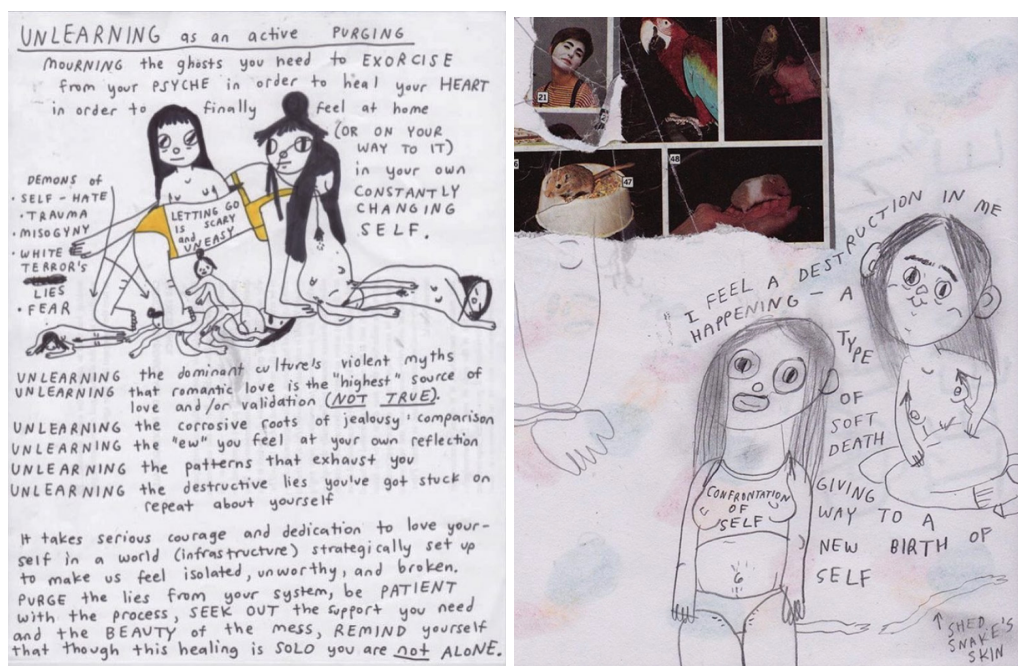 UNLEARNING as an active PURGING
MOURNING the ghosts you need to EXORCISE
from your PSYCHE in order to heal your HEART
in order to finally feel at home
(OR ON YOUR
WAY TO IT)
in your own
CONSTANTLY
CHANGING
SELF.
DEMONS of
• SELF-HATE
• TRAUMA
• MISOGYNY
• WHITE
TERROR'S
LIES
• FEAR
LETTING GO
IS SCARY
and
UNEASY
UNLEARNING the dominant culture's violent myths
UNLEARNING that romantic love is the "highest" source of
love and/or validation (NOT TRUE).
UNLEARNING the corrosive roots of jealousy & comparison
UNLEARNING the "ew" you feel at your own reflection
UNLEARNING the patterns that exhaust you
UNLEARNING the destructive lies you've got stuck on
repeat about yourself
It takes serious courage and dedication to love your-
self in a world (infrastructure) strategically set up
to make us feel isolated, unworthy, and broken.
PURGE the lies from your system, be PATIENT
with the process, SEEK OUT the support you need
and the BEAUTY of the mess, REMIND yourself
that though this healing is SOLO you are not ALONE.
21
47
48
I FEEL A DESTRUCTION IN ME
HAPPENING - A
TYPE
OF
SOFT
DEATH
GIVING
WAY TO A
NEW BIRTH OF
SELF
CONFRONTATION
OF
SELF
SHED
SNAKE'S
SKIN